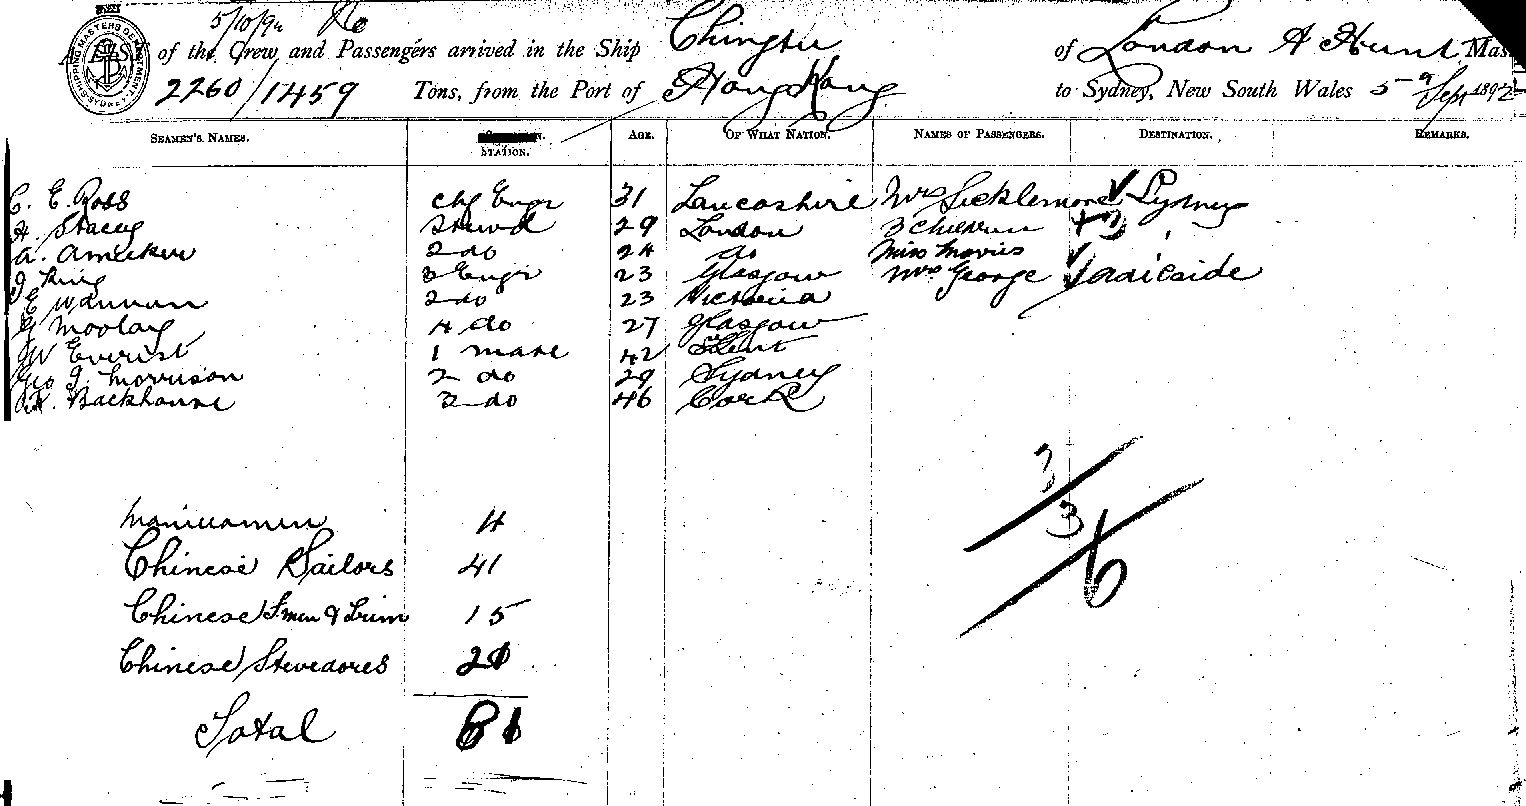 5/10/92
A LIST of the Crew and Passengers arrived in the Ship Chingtu of London A Hunt Mas
2260/1459 Tons, from the Port of Hong Kong to Sydney, New South Wales 5 Sept 1892
SEAMEN'S NAMES. STATION. AGE. OF WHAT NATION. NAMES OF PASSENGERS. DESTINATION. REMARKS.
C. E. Ross Chf Engr 31 Lancashire Mrs Sicklemore Sydney
H Stacey Stewd 29 London 3 children
A. Ameker 2 do 24 do Miss Morris
J King 3 Engr 23 Glasgow Mrs George Adelaide
E 2 do 23 Victoria
4 do 27 Glasgow
W Everist 1 mate 42 Kent
Geo J. Morrison 2 do 29 Sydney
Backhouse 3 do 46 Cork
3
3
6
4
Chinese Sailors 41
Chinese F.men & Trim 15
Chinese Stevedores 21
Total 81